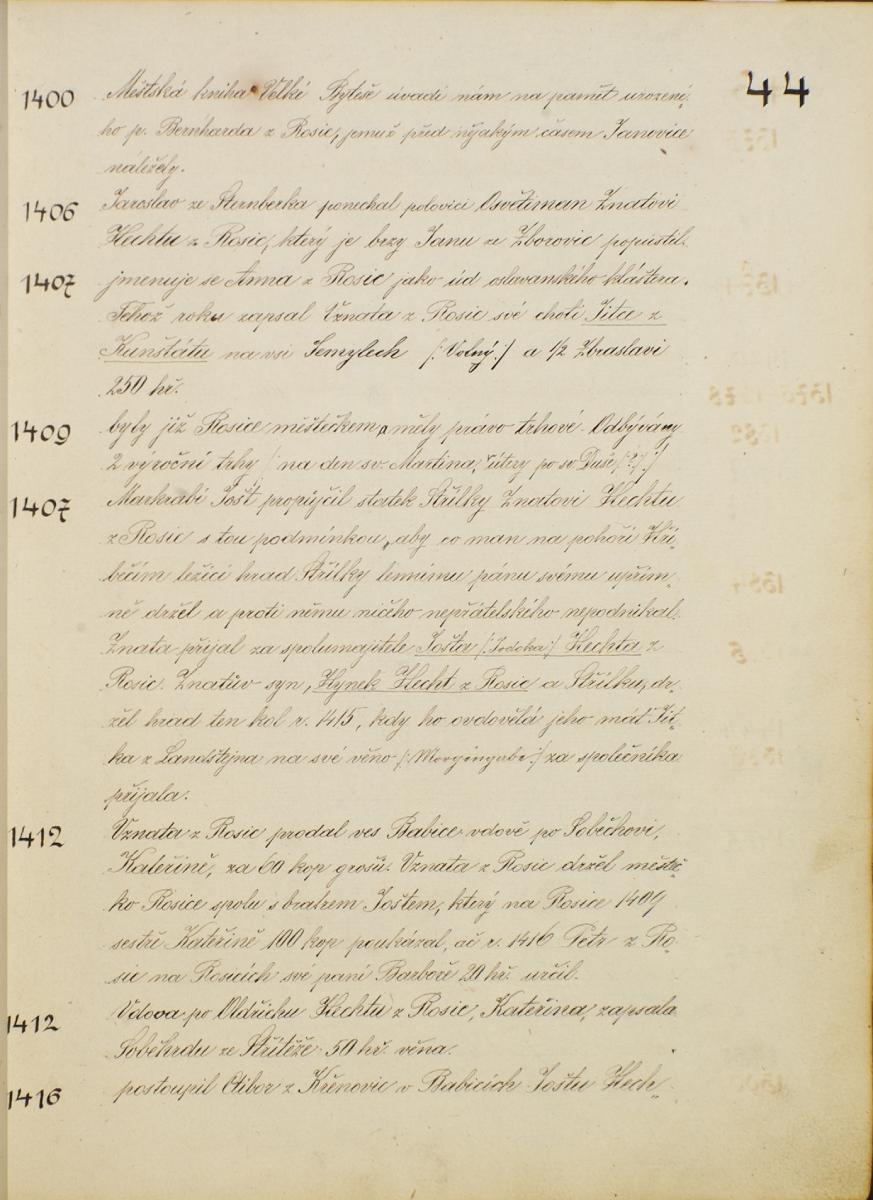 44
1400 Městská kniha Velké Byteše uvádí nám na paměť urozené-
ho p. Bernharda z Rosic, jemuž před nějakým časem Janovice
náležely.
1406 Jaroslav ze Šternberka ponechal polovici Osvětiman Znatovi
Hechtu z Rosic, který je brzy Janu ze Zborovic popustil.
1407 jmenuje se Anna z Rosic jako úd oslavanského kláštera.
Téhož roku zapsal Vznata z Rosic své choti Jitce z
Kunštátu na vsi Semzlech /: Volný :/ a 1/2 Zbraslavi
250 hř.
1409 byly již Rosice městečkem, a měly právo trhové. Odbývány
2 výroční trhy /: na den sv. Martina, úterý po sv Duše, (?) :/
1407 Markrabí Jošt propůjčil statek Střílky Znatovi Hechtu
z Rosic s tou podmínkou, aby co man na pohoří Hří-
běcím ležící hrad Střílky lennímu pánu svému upřím-
ně držel a proti němu ničeho nepřátelského nepodnikal.
Znata přijal za spolumajitele Jošta /: Jodoka :/ Hechta z
Rosic. Znatův syn, Hynek Hecht z Rosic a Střílku, dr-
žel hrad ten kol r. 1415, kdy ho ovdovělá jeho máť Jit-
ka z Landštejna na své věno /: Morgengabe :/ za společníka
přijala.
1412 Vznata z Rosic prodal ves Babice vdově po Soběhkovi,
Kateřině, za 60 kop grošů. Vznata z Rosic držel městeč-
ko Rosice spolu s bratrem Joštem, který na Rosice 1409
sestře Kateřině 100 kop poukázal, ač r. 1416 Petr z Ro-
sic na Rosicích své paní Barboře 20 hř. určil.
1412 Vdova po Oldřichu Hechtu z Rosic, Kateřina, zapsala
Soběhrdu ze Střítěže 50 hř. věna.
1416 postoupil Ctibor z Křenovic v Babicích Joštu Hech-